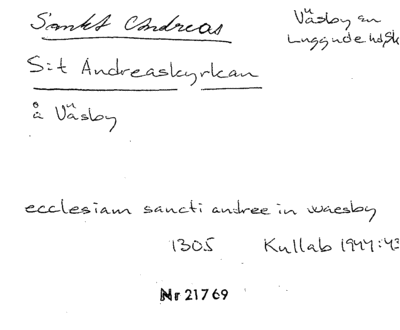 Sankt Andreas
Väsby sn
Luggude hd, Sk
S:t Andreaskyrkan
å Väsby
ecclesiam sancti andree in waesby
1305 Kullab 1944:43
Nr 21769